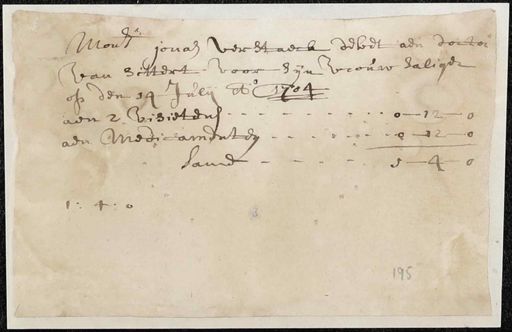 Mons.r jonas verstaeck debet aen doctor
van Schert voor syn vrouw saliger
op den 14 July Ao 1704
aen 2 visieten - - - - - 0 - 12 - 0
aen Medicamenten - - - - - 0 - 12 - 0
Samen - - - - - 1 - 4 - 0
1 : 4 : 0
195